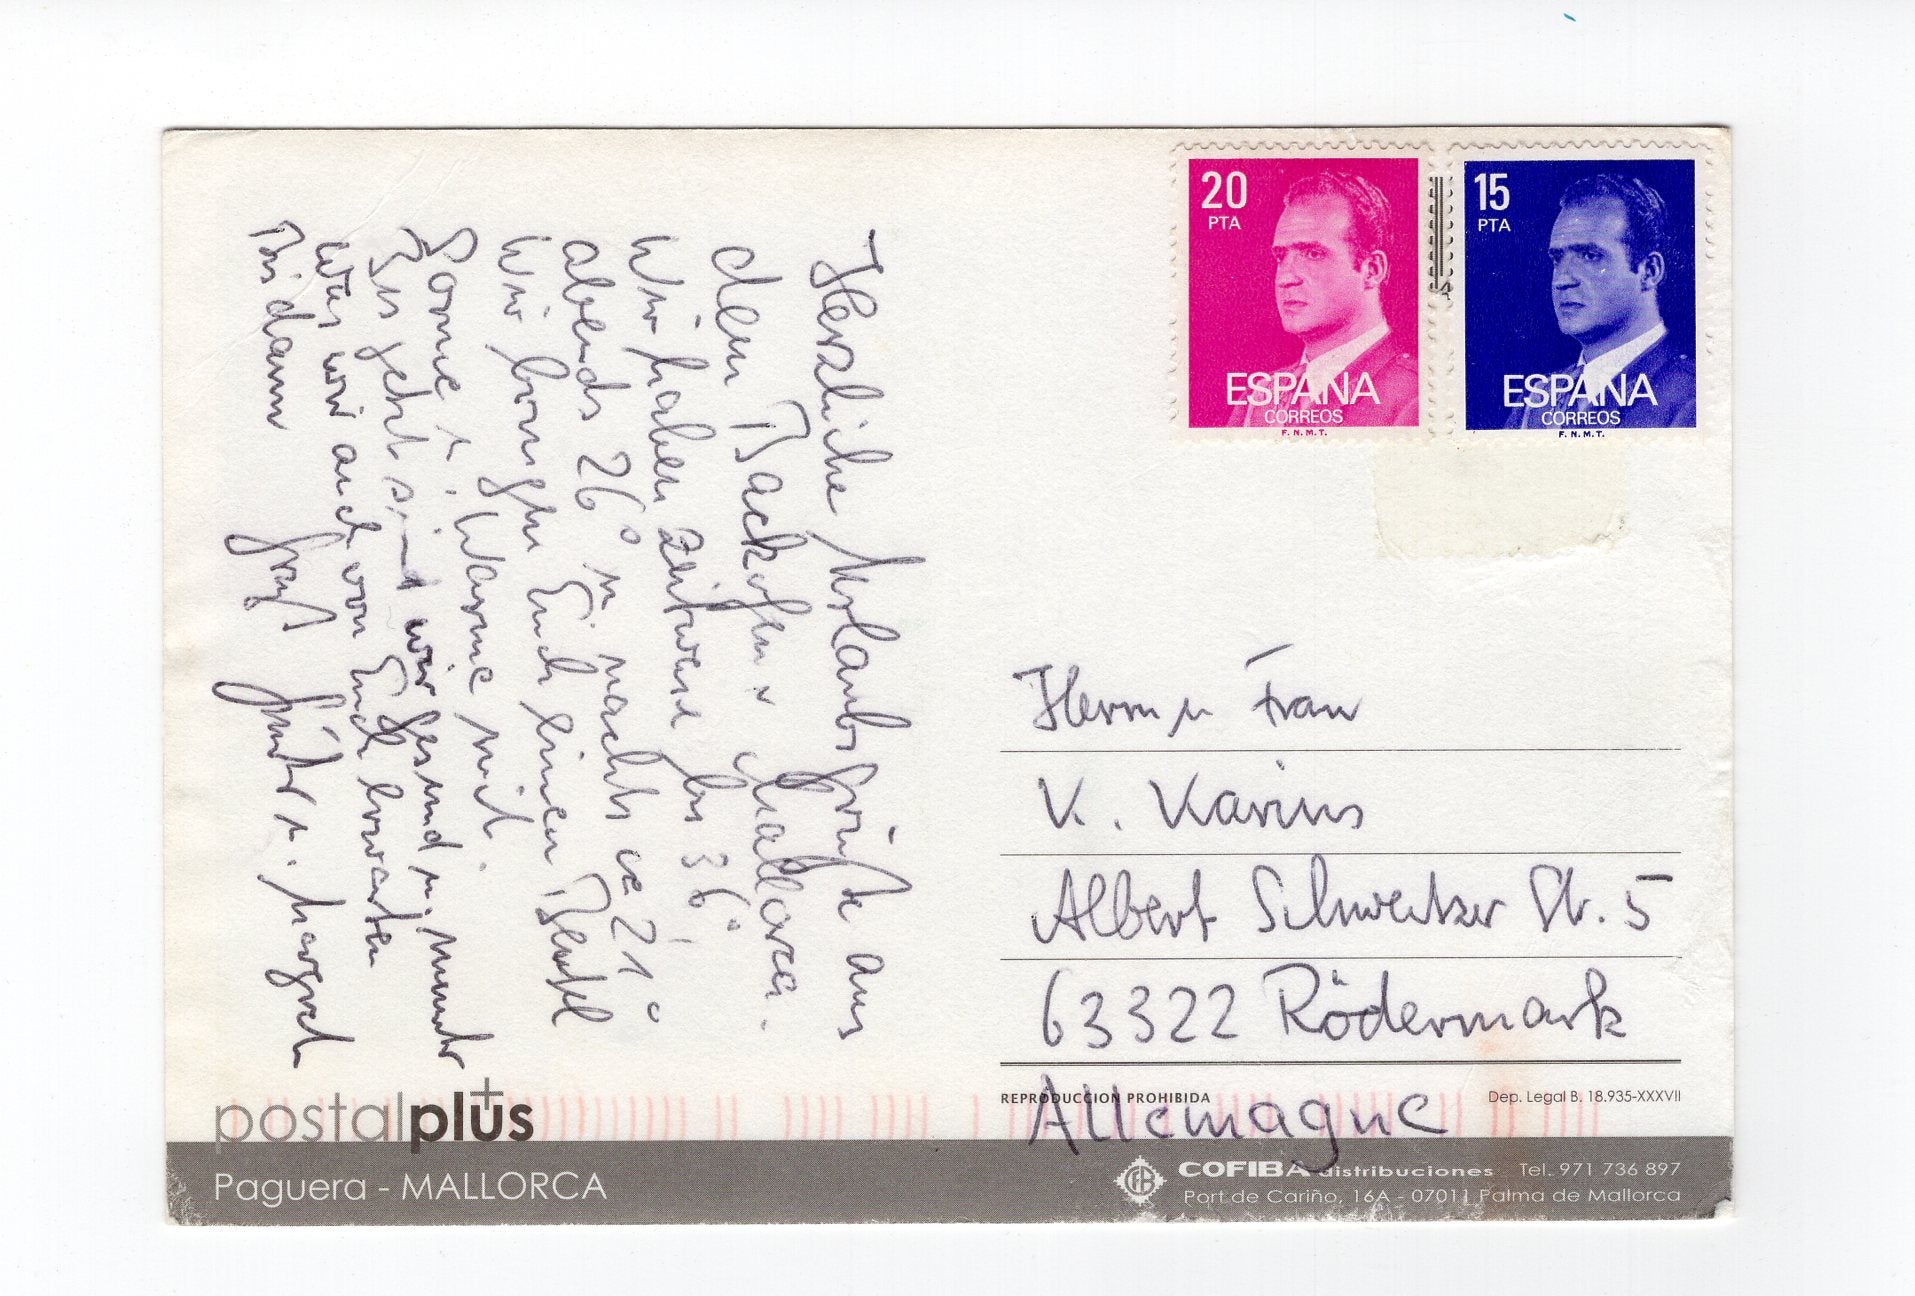 Herzliche Urlaubsgrüße aus
dem Backofen Mallorca.
Wir haben zeitweise bis 36°,
abends 26° u. nachts ca 21°
Wir bringen Euch einen Beutel
Sonne u. Wärme mit.
Uns geht's, sind wir gesund u. munter
was wir auch von Euch erwarten
Bis dann
Gruß Günter u. Margret
20
PTA
ESPAÑA
CORREOS
F.N.M.T.
15
PTA
ESPAÑA
CORREOS
F.N.M.T.
Herrn u Frau
K. Karius
Albert Schweitzer Str. 5
63322 Rödermark
Allemagne
REPRODUCCION PROHIBIDA
Dep. Legal B. 18.935-XXXVII
postalplus
Paguera - MALLORCA
COFIBA distribuciones Tel. 971 736 897
Port de Cariño, 16A - 07011 Palma de Mallorca